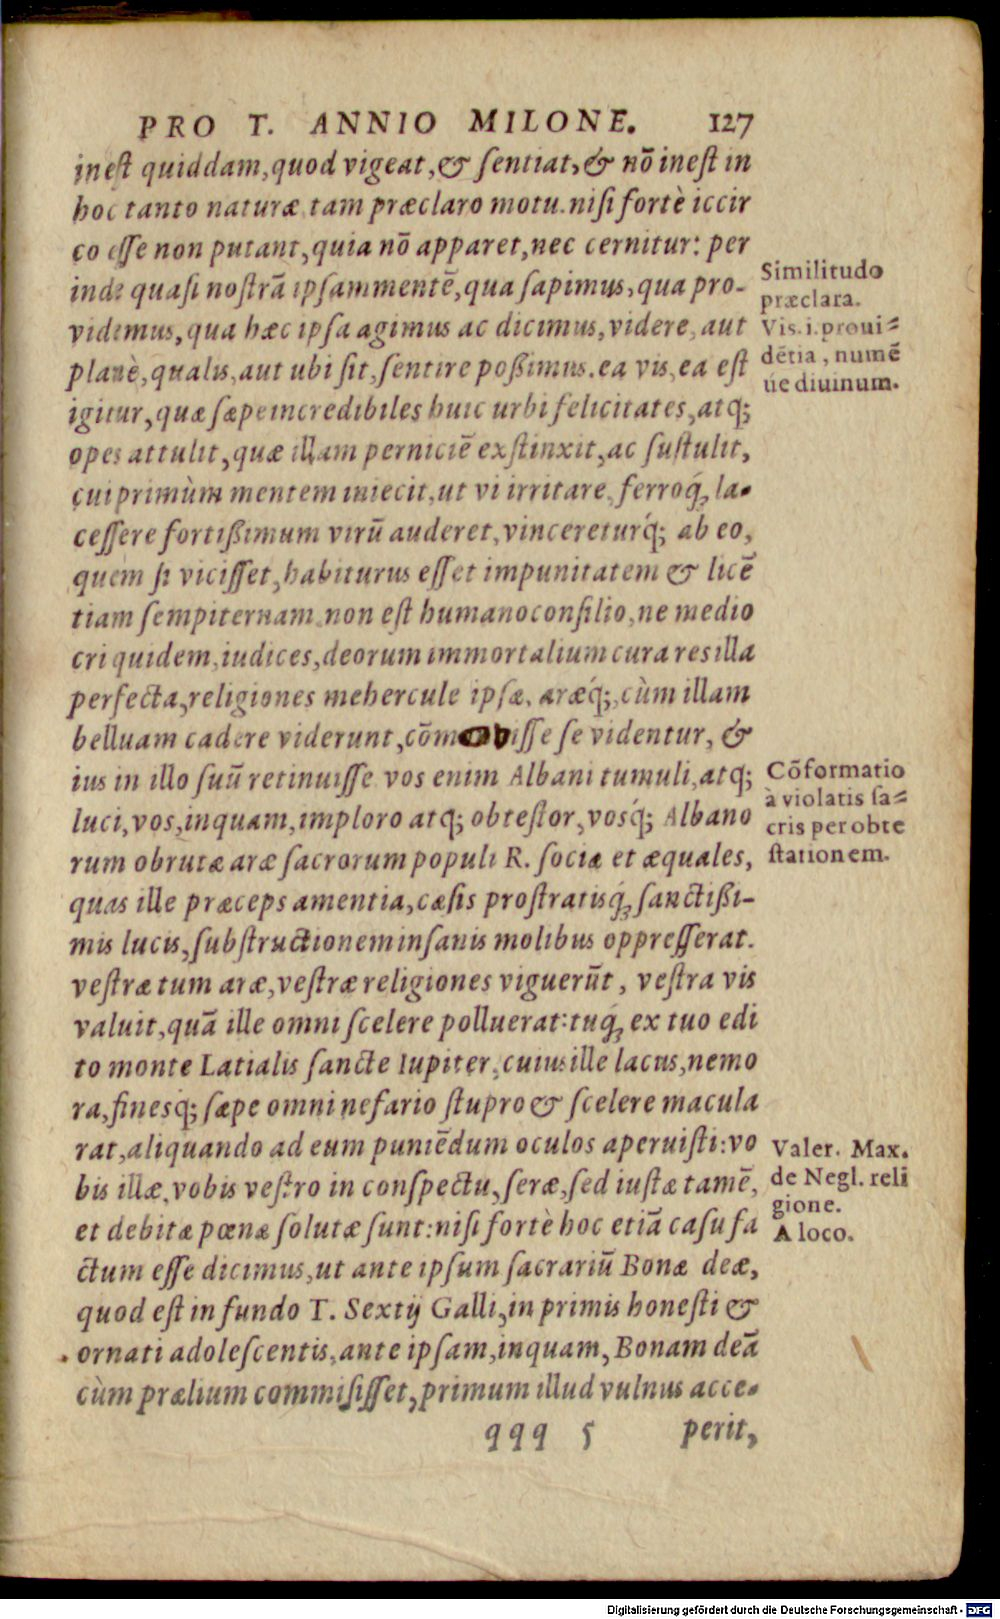 PRO T. ANNIO MILONE. 127
inest quiddam, quod vigeat, & sentiat, & nō inest in
hoc tanto naturæ tam præclaro motu. nisi fortè iccir
co esse non putant, quia nō apparet, nec cernitur: per
inde quasi nostrā ipsam mentē, qua sapimus, qua pro-
videmus, qua hæc ipsa agimus ac dicimus, videre, aut
planè, qualis, aut ubi sit, sentire possimus. ea vis, ea est
igitur, quæ sæpe incredibiles huic urbi felicitates, atq;
opes attulit, quæ illam perniciē exstinxit, ac sustulit,
cui primùm mentem iniecit, ut vi irritare, ferroq́; la-
cessere fortissimum virū auderet, vincereturq́; ab eo,
quem si vicisset, habiturus esset impunitatem & licē
tiam sempiternam. non est humano consilio, ne medio
cri quidem, iudices, deorum immortalium cura res illa
perfecta, religiones mehercule ipsæ, aræq́;, cùm illam
belluam cadere viderunt, cōmovisse se videntur, &
ius in illo suū retinuisse. vos enim Albani tumuli, atq;
luci, vos, inquam, imploro atq; obtestor, vosq́; Albano
rum obrutæ aræ sacrorum populi R. sociæ et æquales,
quas ille præceps amentia, cæsis prostratisq́; sanctissi-
mis lucis, substructionem insanis molibus oppresserat.
vestræ tum aræ, vestræ religiones viguerūt, vestra vis
valuit, quā ille omni scelere polluerat: tuq́; ex tuo edi
to monte Latialis sancte Iupiter, cuius ille lacus, nemo
ra, finesq́; sæpe omni nefario stupro & scelere macula
rat, aliquando ad eum puniēdum oculos aperuisti: vo
bis illæ, vobis vestro in conspectu, seræ, sed iustæ tamē,
et debitæ pœnæ solutæ sunt: nisi fortè hoc etiā casu fa
ctum esse dicimus, ut ante ipsum sacrariū Bonæ deæ,
quod est in fundo T. Sextij Galli, in primis honesti &
ornati adolescentis, ante ipsam, inquam, Bonam deā
cùm prælium commisisset, primum illud vulnus acce-
qqq 5 perit,
Similitudo
præclara.
Vis. i. proui-
dētia, numē
úe diuinum.
Cōformatio
à violatis sa-
cris per obte
stationem.
Valer. Max.
de Negl. reli
gione.
A loco.
Digitalisierung gefördert durch die Deutsche Forschungsgemeinschaft - DFG